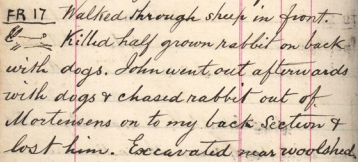 FR 17 Walked through sheep in front.
Killed half grown rabbit on back
with dogs. John went out afterwards
with dogs & chased rabbit out of
Mortensens on to my back Section &
lost him. Excavated near woolshed